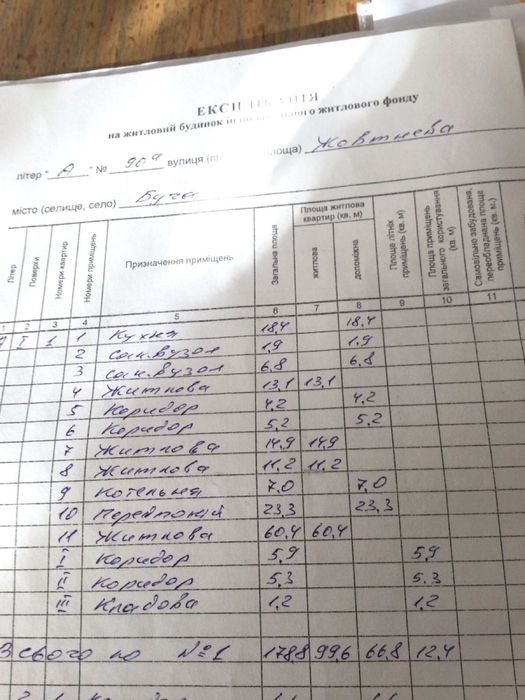 на житловий будинок житлового фонду
літер " А " № 909 вулиця площа) Жовтнева
місто (селище, село) Буча
Літер Поверхи Номери квартир Номери приміщень Призначення приміщень Загальна площа Площа житлова квартир (кв. м) житлова допоміжна Площа літніх приміщень (кв. м) Площа приміщень загального користування (кв. м) Самовільно збудована, переобладнана площа приміщень (кв. м.)
1 2 3 4 5 6 7 8 9 10 11
I 1 1 Кухня 18,4 18,4
2 сан.вузол 1,9 1,9
3 сан.вузол 6,8 6,8
4 Житлова 13,1 13,1
5 Коридор 4,2 4,2
6 Коридор 5,2 5,2
7 Житлова 14,9 14,9
8 Житлова 11,2 11,2
9 Котельня 7,0 7,0
10 23,3 23,3
11 Житлова 60,4 60,4
I Коридор 5,9 5,9
II Коридор 5,3 5,3
III Кладова 1,2 1,2
Всього по №1 178,8 99,6 66,8 12,4